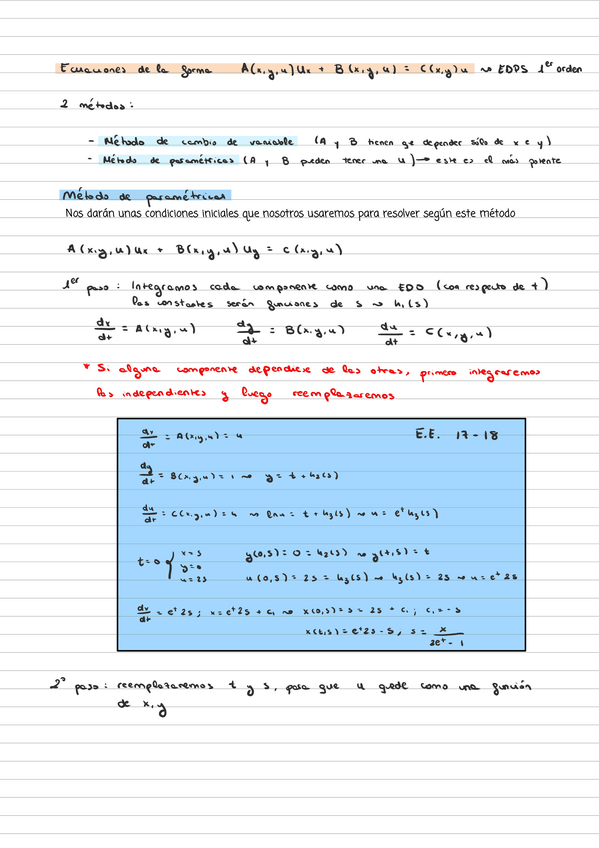 Ecuaciones de la forma A(x,y,u)Ux + B(x,y,u) = C(x,y)u ⇝ EDPS 1er orden
2 métodos:
- Método de cambio de variable (A y B tienen qe depender sólo de x e y)
- Método de paramétricas (A y B pueden tener una u) → este es el más potente
Método de paramétricas
Nos darán unas condiciones iniciales que nosotros usaremos para resolver según este método
A(x,y,u)Ux + B(x,y,u)Uy = C(x,y,u)
1er paso: Integramos cada componente como una EDO (con respecto de t)
las constantes serán funciones de s ⇝ h₁(s)
dx/dt = A(x,y,u) dy/dt = B(x,y,u) du/dt = C(x,y,u)
* Si alguna componente dependiese de las otras, primero integraremos
las independientes y luego reemplazaremos
dx/dt = A(x,y,u) = u E.E. 17-18
dy/dt = B(x,y,u) = 1 ⇝ y = t + h₂(s)
du/dt = C(x,y,u) = u ⇝ lnu = t + h₃(s) ⇝ u = eᵗ h₃(s)
t=0 { x=s y=0 u=2s
y(0,s) = 0 = h₂(s) ⇝ y(t,s) = t
u(0,s) = 2s = h₃(s) ⇝ h₃(s) = 2s ⇝ u = eᵗ 2s
dx/dt = eᵗ 2s ; x = eᵗ 2s + c₁ ⇝ x(0,s) = s = 2s + c₁ ; c₁ = -s
x(t,s) = eᵗ 2s - s, s = x/(2eᵗ - 1)
2º paso: reemplazaremos t y s, para que u quede como una función
de x,y